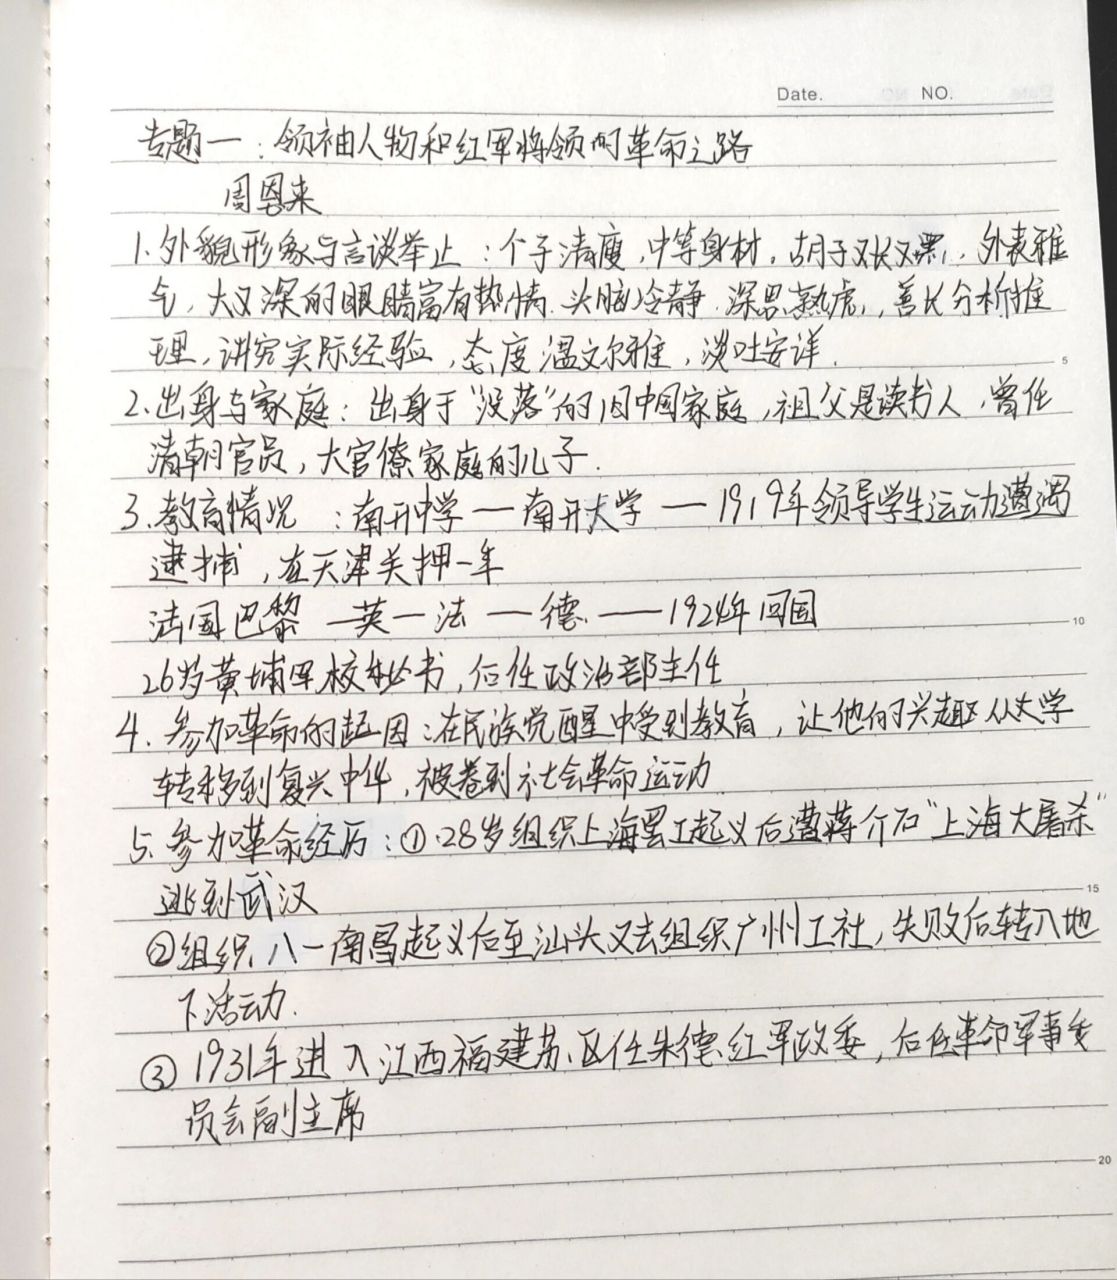 Date. NO.
专题一：领袖人物和红军将领的革命之路
周恩来
1.外貌形象与言谈举止：个子清瘦,中等身材，胡子又长又黑，外表稚
气，大又深的眼睛富有热情.头脑冷静.深思熟虑，善长分析推
理，讲究实际经验，态度温文尔雅，谈吐安详.
5
2.出身与家庭：出身于“没落”的旧中国家庭,祖父是读书人，曾任
清朝官员，大官僚家庭的儿子.
3.教育情况：南开中学—南开大学—1919年领导学生运动遭遇
逮捕，在天津关押一年
法国巴黎—英—法—德——1924年回国
10
26岁黄埔军校秘书，后任政治部主任
4.参加革命的起因：在民族觉醒中受到教育，让他的兴趣从文学
转移到复兴中华，被卷到社会革命运动
5.参加革命经历：①.28岁组织上海罢工起义后遭蒋介石“上海大屠杀”
逃到武汉
15
②组织八一南昌起义后至汕头又去组织广州工社，失败后转入地
下活动.
③1931年进入江西福建苏区任朱德红军政委，后任革命军事委
员会副主席
20